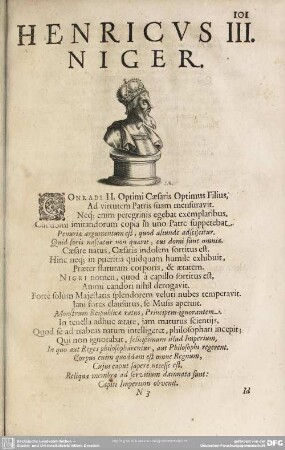 101
HENRICVS III.
NIGER.
CONRADI II. Optimi Cæsaris Optimus Filius,
Ad virtutem Patris suam mensuravit.
Neq; enim peregrinis egebat exemplaribus,
Cui domi imitandorum copia in uno Patre suppetebat.
Penuriæ argumentum est, quod aliunde adsciscitur.
Quid foris nascatur non quærit, cui domi sunt omnia.
Cæsare natus, Cæsaris indolem sortitus est.
Hinc neq; in pueritia quidquam humile exhibuit,
Præter staturam corporis, & ætatem.
NIGRI nomen, quod à capillo sortitus est,
Animi candori nihil derogavit.
Forte solum Majestatis splendorem veluti nubes temperavit.
Jani fores clausurus, se Musis aperuit.
Monstrum Reipublicæ ratus, Principem ignorantem.
In tenella adhuc ætate, jam maturus scientijs,
Quod se ad trabeas natum intelligeret, philosophari incepit;
Qui non ignorabat, felicissimum illud Imperium,
In quo aut Reges philosopharentur, aut Philosophi regerent.
Corpus enim quoddam est omne Regnum,
Cujus caput sapere necesse est,
Reliqua membra ad servitium damnata sunt:
Capiti Imperium obvenit.
N 3
Id